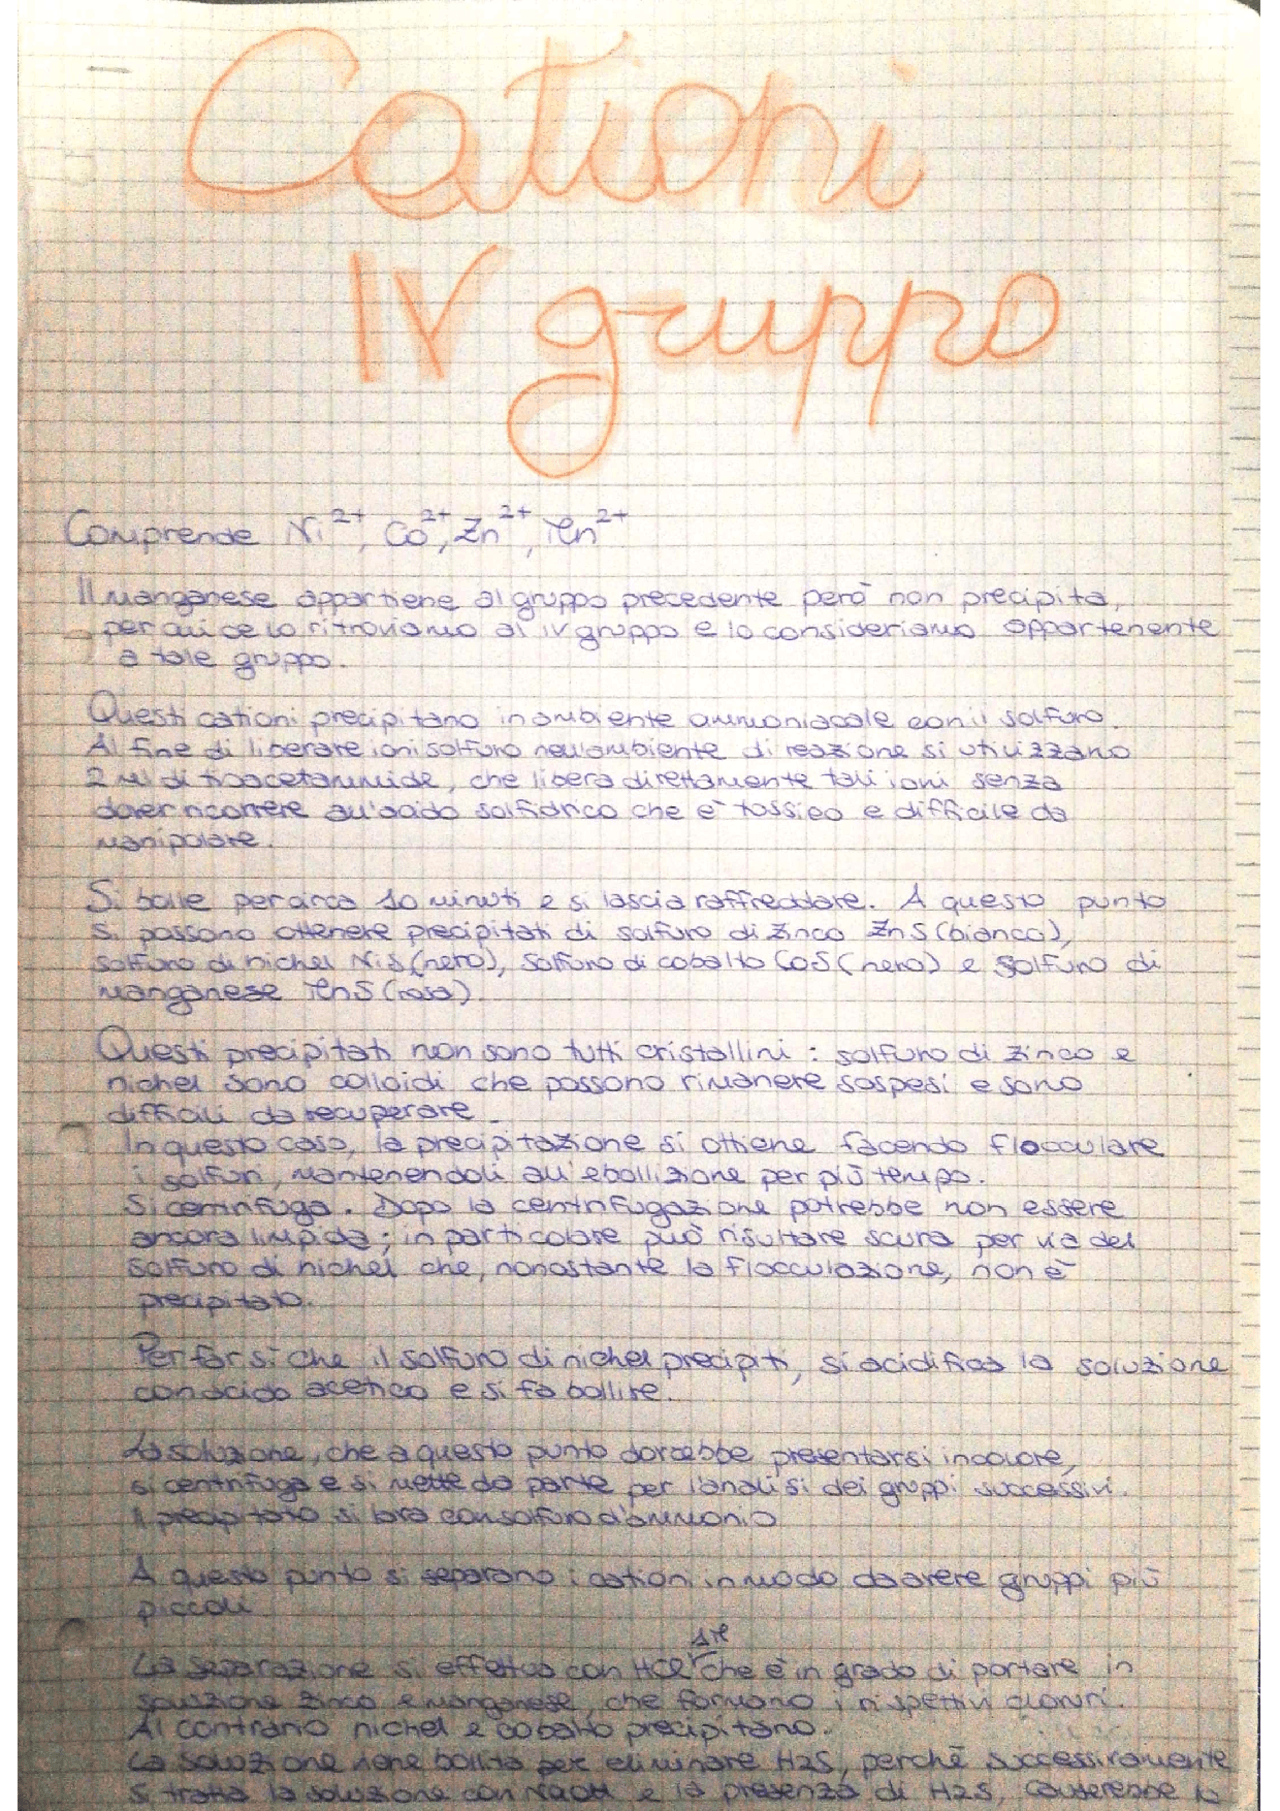 Cationi
IV gruppo
Comprende Ni²⁺, Co²⁺, Zn²⁺, Mn²⁺
Il manganese appartiene al gruppo precedente però non precipita,
per cui ce lo ritroviamo al IV gruppo e lo consideriamo appartenente
a tale gruppo.
Questi cationi precipitano in ambiente ammoniacale con il solfuro.
Al fine di liberare ioni solfuro nell'ambiente di reazione si utilizzano
2 ml di tioacetammide, che libera direttamente tali ioni senza
dover ricorrere all'acido solfidrico che è tossico e difficile da
manipolare.
Si bolle per circa 10 minuti e si lascia raffreddare. A questo punto
si possono ottenere precipitati di solfuro di zinco ZnS (bianco),
solfuro di nichel NiS (nero), solfuro di cobalto CoS (nero) e solfuro di
manganese MnS (rosa).
Questi precipitati non sono tutti cristallini : solfuro di zinco e
nichel sono colloidi che possono rimanere sospesi e sono
difficili da recuperare.
In questo caso, la precipitazione si ottiene facendo flocculare
i solfuri, mantenendoli all'ebollizione per più tempo.
Si centrifuga. Dopo la centrifugazione potrebbe non essere
ancora limpida; in particolare può risultare scura per via del
solfuro di nichel che, nonostante la flocculazione, non è
precipitato.
Per far sì che il solfuro di nichel precipiti, si acidifica la soluzione
con acido acetico e si fa bollire.
La soluzione, che a questo punto dovrebbe presentarsi incolore,
si centrifuga e si mette da parte per l'analisi dei gruppi successivi.
Il precipitato si lava con solfuro d'ammonio
A questo punto si separano i cationi in modo da avere gruppi più
piccoli
La separazione si effettua con HCl 1M che è in grado di portare in
soluzione zinco e manganese, che formano i rispettivi cloruri.
Al contrario nichel e cobalto precipitano.
La soluzione viene bollita per eliminare H2S, perchè successivamente
si tratta la soluzione con NaOH e la presenza di H2S, causerebbe la